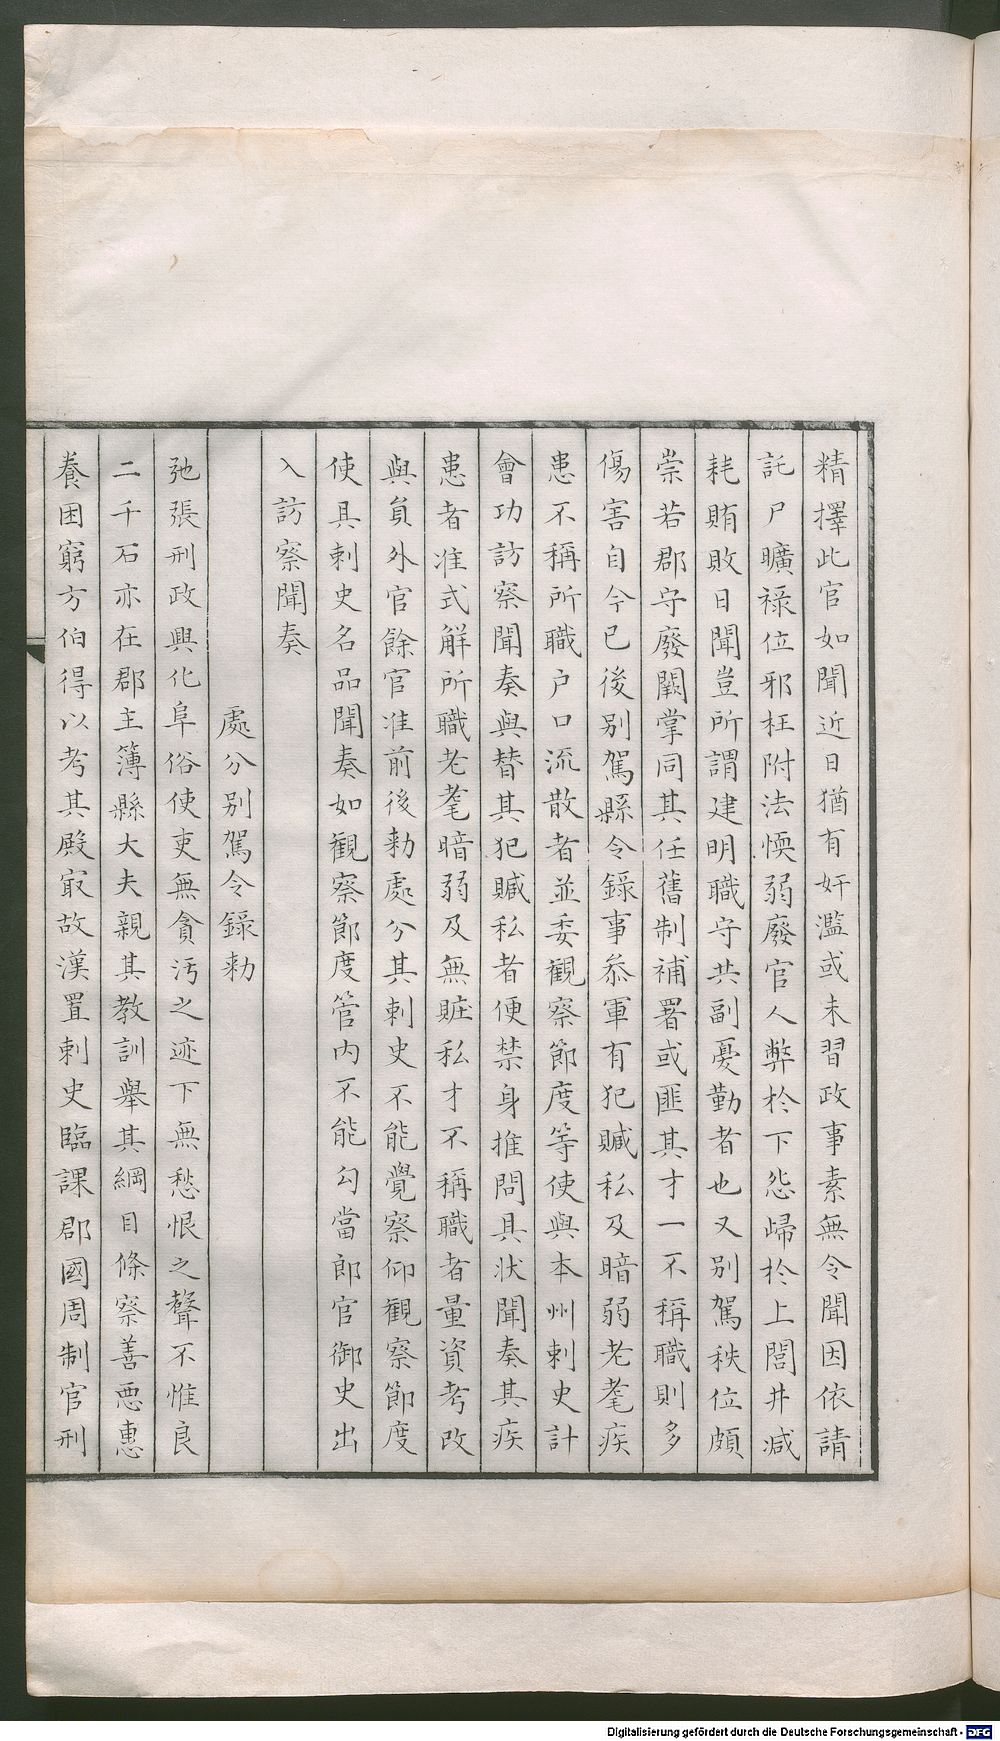 精擇此官如聞近日猶有奸濫或未習政事素無令聞因依請
託尸曠祿位邪枉附法愞弱廢官人弊於下怨歸於上閭井減
耗賄敗日聞豈所謂建明職守共副憂勤者也又別駕秩位頗
崇若郡守廢闕掌同其任舊制補署或匪其才一不稱職則多
傷害自今已後別駕縣令錄事叅軍有犯贓私及暗弱老耄疾
患不稱所職户口流散者並委觀察節度等使與本州刺史計
會功訪察聞奏與替其犯贓私者便禁身推問具狀聞奏其疾
患者准式解所職老耄暗弱及無賍私才不稱職者量資考改
與員外官餘官准前後勑處分其刺史不能覺察仰觀察節度
使具刺史名品聞奏如觀察節度管内不能勾當郎官御史出
入訪察聞奏
處分別駕令錄勑
弛張刑政興化阜俗使吏無貪汚之迹下無愁恨之聲不惟良
二千石亦在郡主簿縣大夫親其教訓舉其綱目條察善惡惠
養困窮方伯得以考其殿㝡故漢置刺史臨課郡國周制官刑
Digitalisierung gefördert durch die Deutsche Forschungsgemeinschaft - DFG